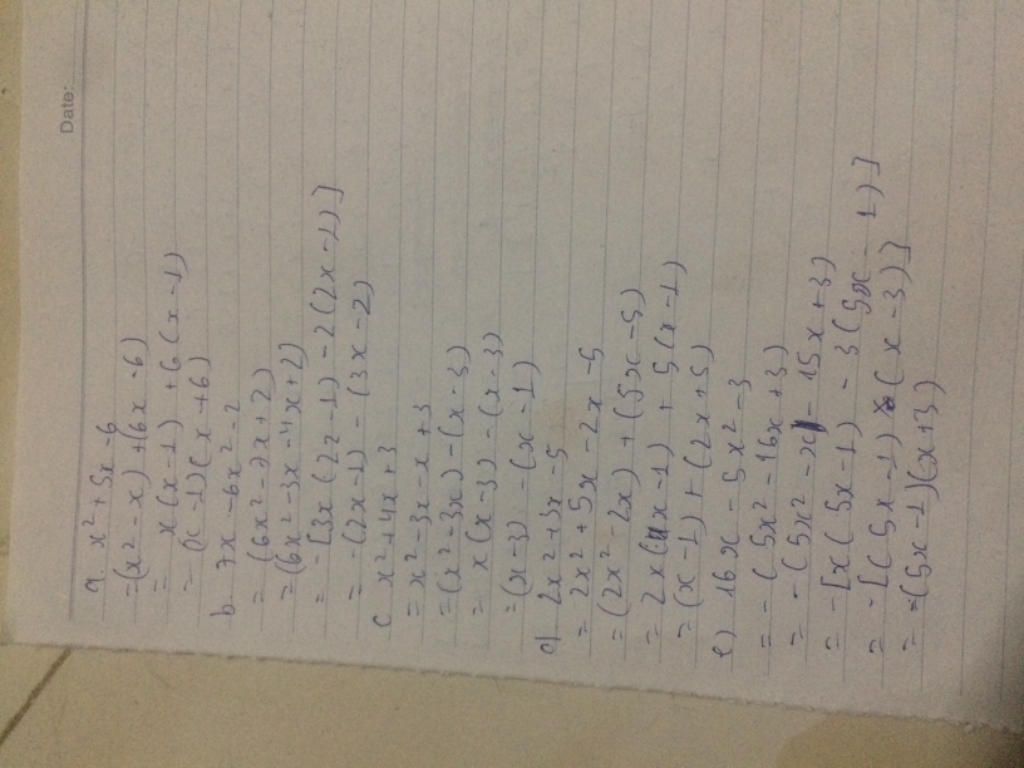 Date:
a. x² + 5x - 6
= (x² - x) + (6x - 6)
= x(x - 1) + 6(x - 1)
= (x - 1)(x + 6)
b. 7x - 6x² - 2
= (6x² - 7x + 2)
= (6x² - 3x - 4x + 2)
= -[3x(2x - 1) - 2(2x - 1)]
= -(2x - 1) - (3x - 2)
c x² + 4x + 3
= x² - 3x - x + 3
= (x² - 3x) - (x - 3)
= x(x - 3) - (x - 3)
= (x - 3) - (x - 1)
d) 2x² + 3x - 5
= 2x² + 5x - 2x - 5
= (2x² - 2x) + (5x - 5)
= 2x(x - 1) + 5(x - 1)
= (x - 1) + (2x + 5)
e) 16x - 5x² - 3
= - (5x² - 16x + 3)
= - (5x² - x - 15x + 3)
= - [x(5x - 1) - 3(5x - 1)]
= - [(5x - 1) (x - 3)]
= -(5x - 1)(x + 3)